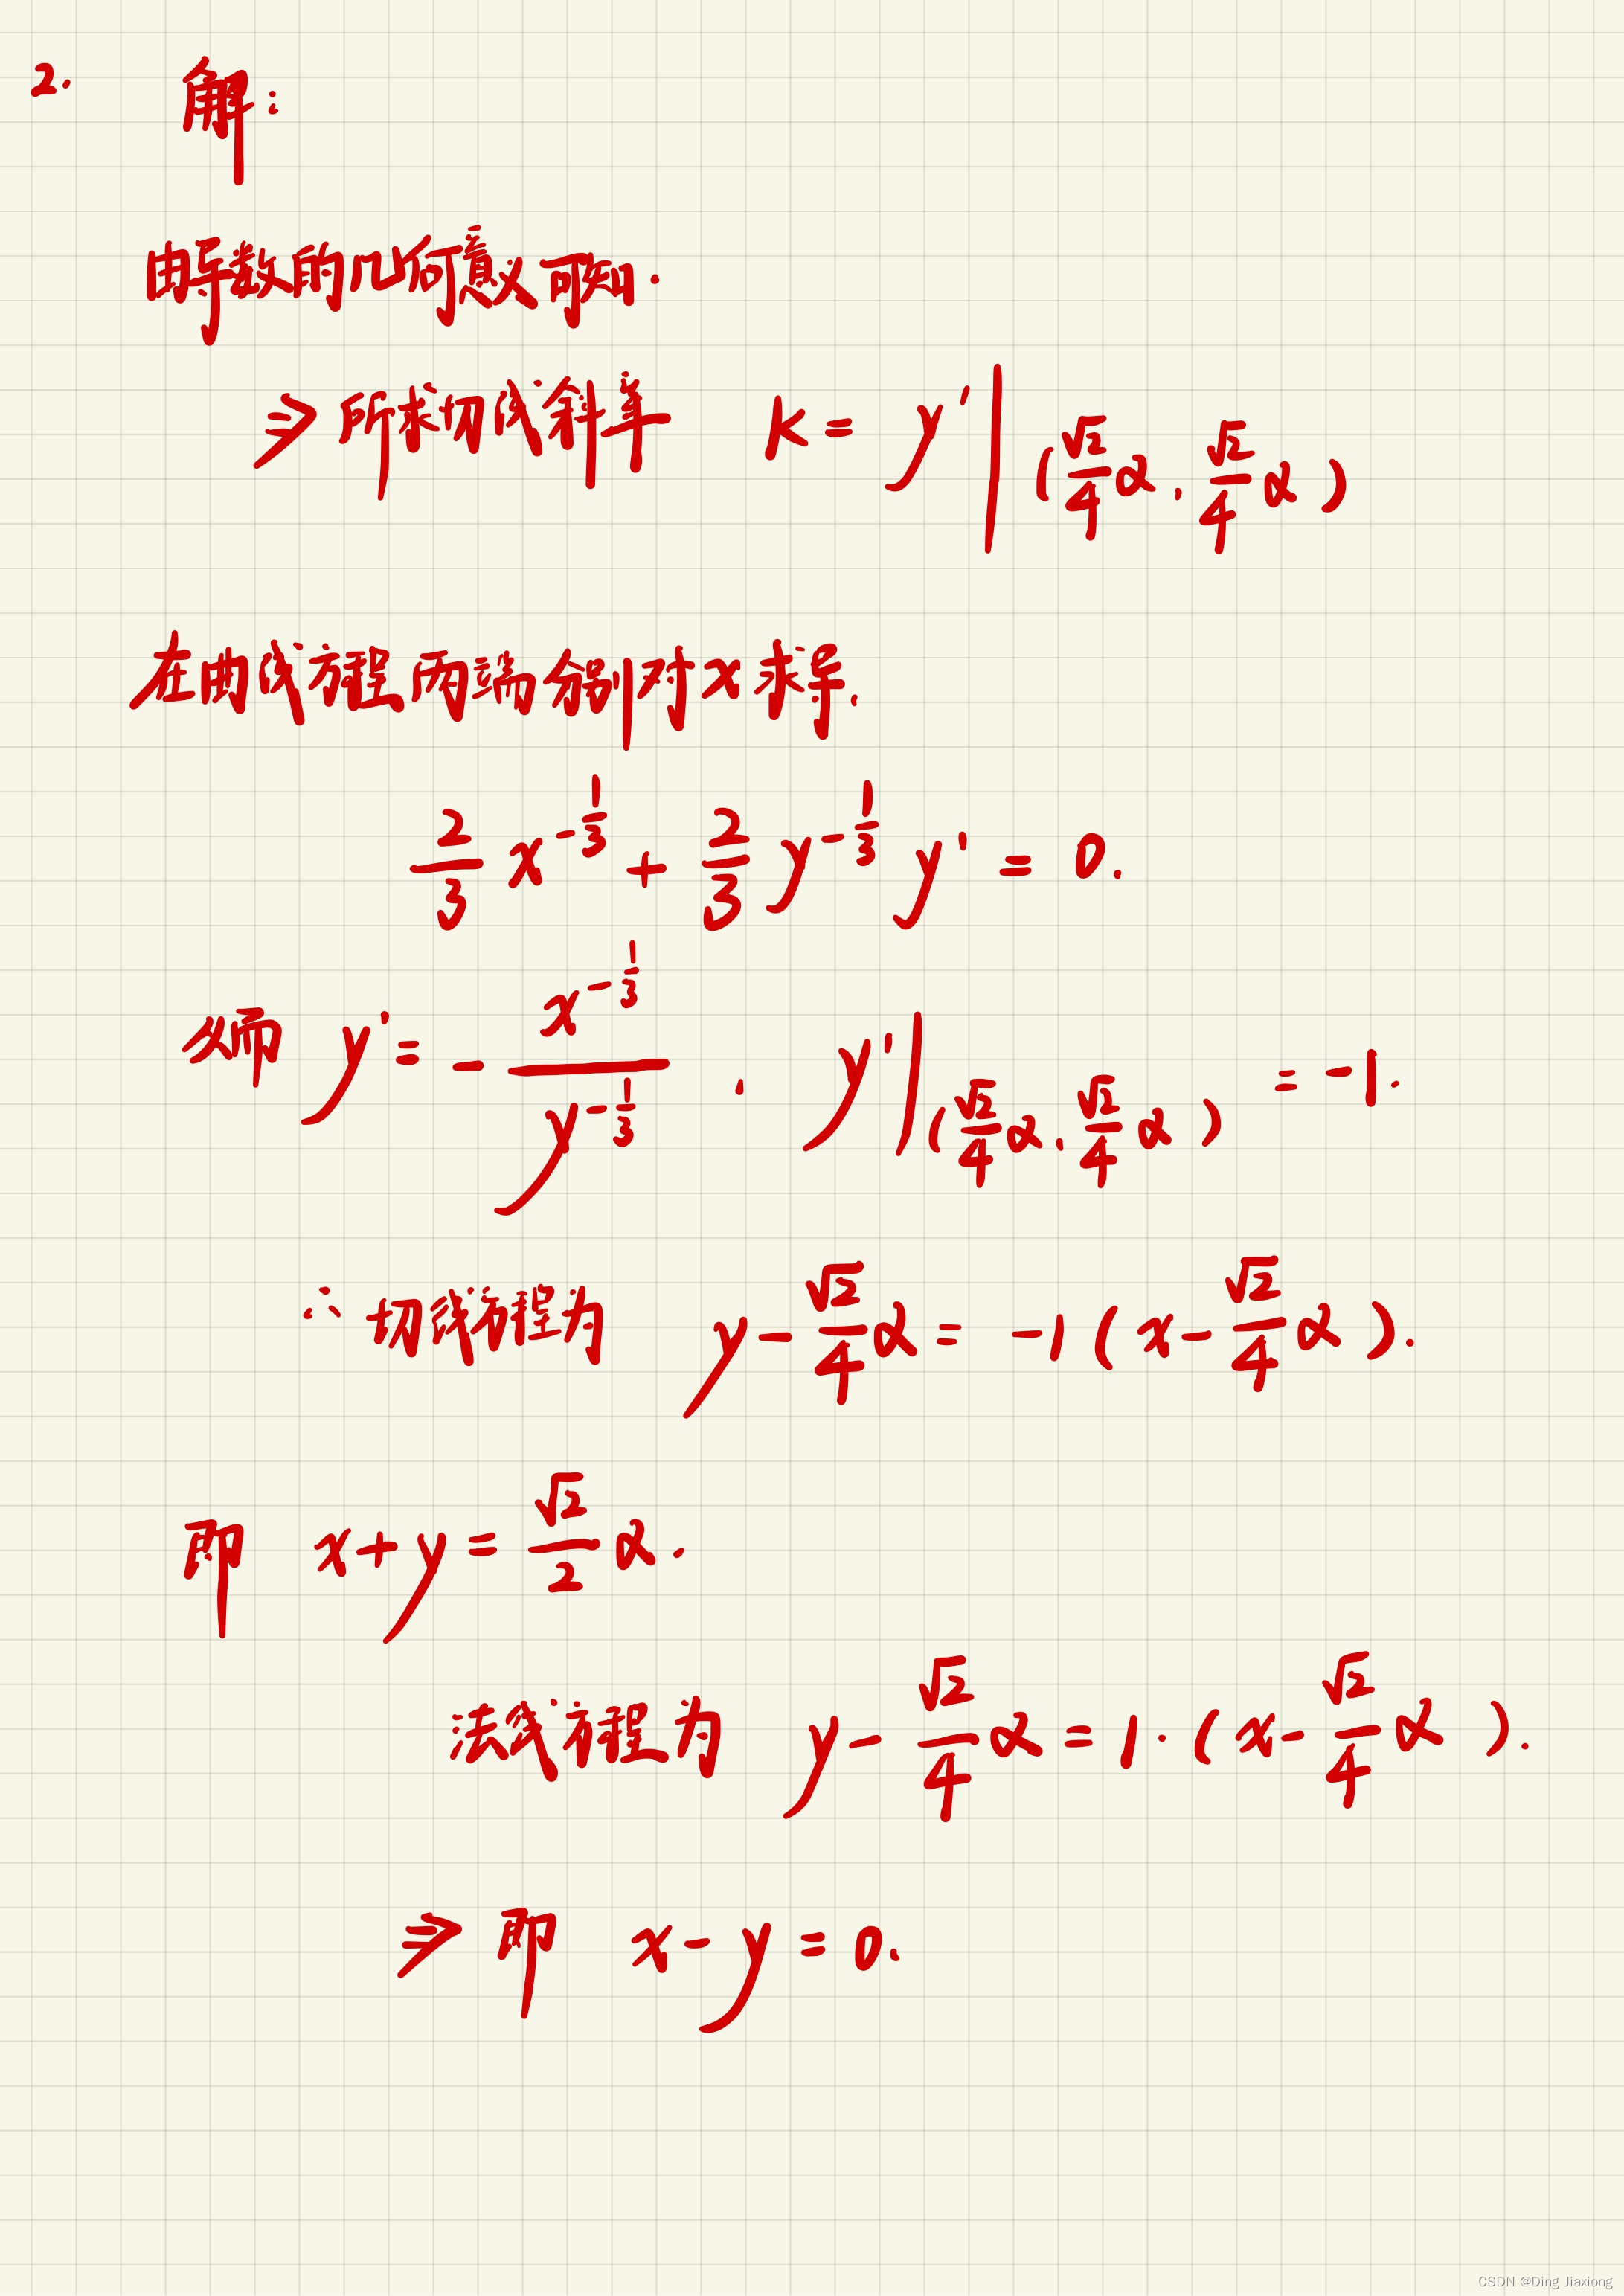 2. 解:
由导数的几何意义可知.
⇒ 所求切线斜率 k = y'|_(√2/4 a, √2/4 a)
在曲线方程两端分别对x求导.
2/3 x^(-1/3) + 2/3 y^(-1/3) y' = 0.
从而 y' = - x^(-1/3) / y^(-1/3) . y'|_(√2/4 a, √2/4 a) = -1.
∴ 切线方程为 y - √2/4 a = -1 (x - √2/4 a).
即 x + y = √2/2 a.
法线方程为 y - √2/4 a = 1·(x - √2/4 a).
⇒ 即 x - y = 0.
CSDN @Ding Jiaxiong